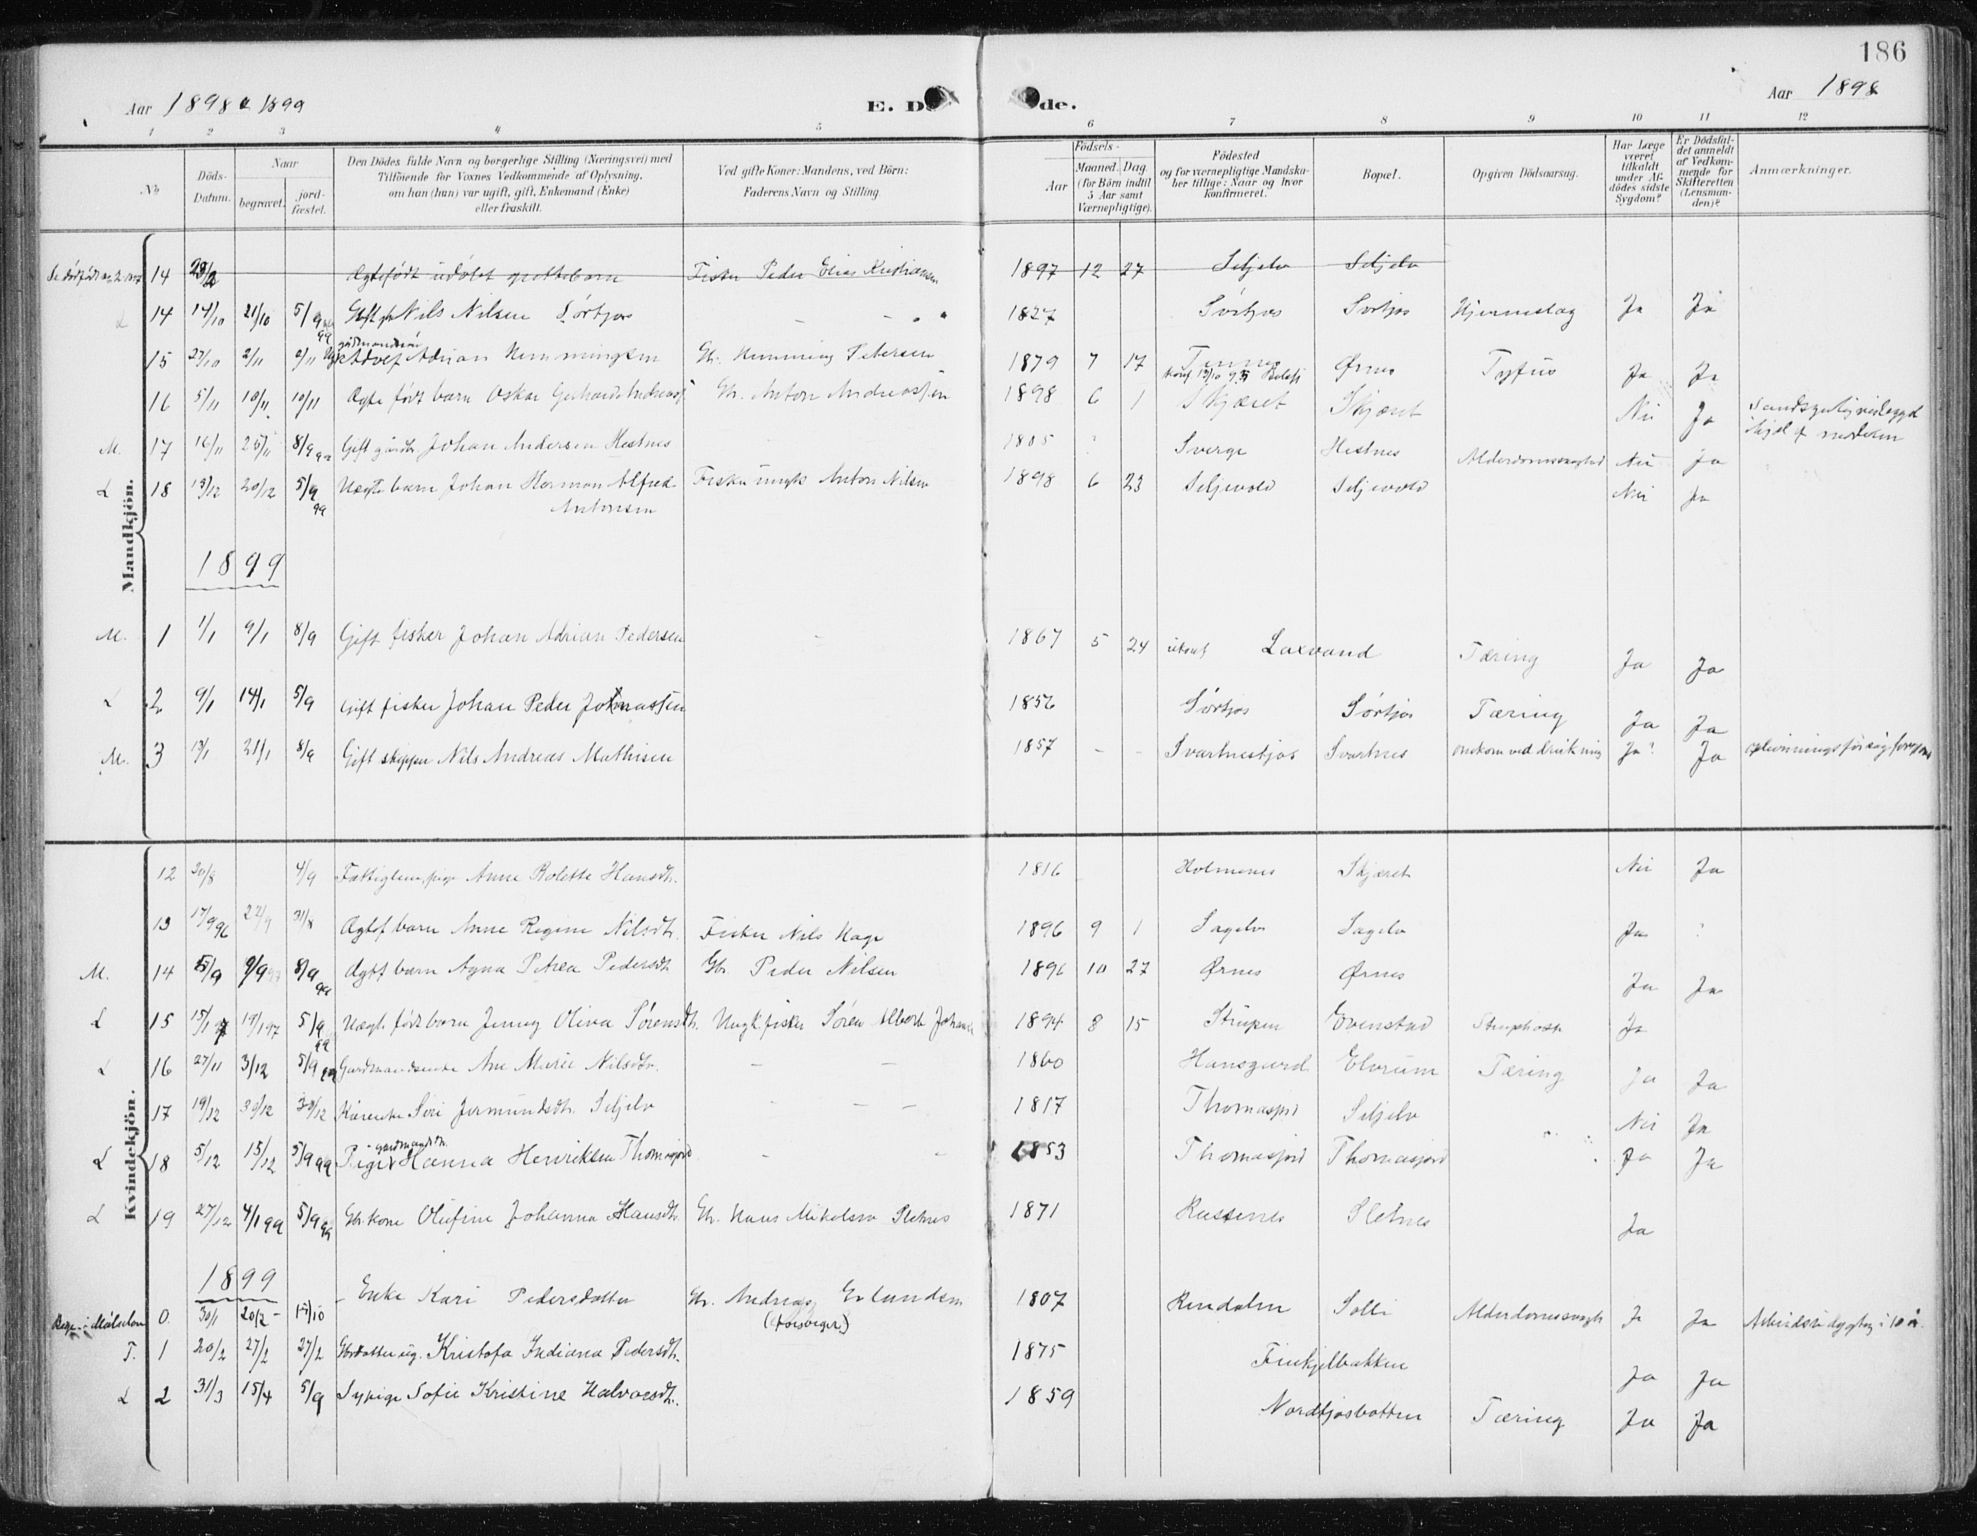 186
Aar 1898 & 1899 E. Dö de. Aar 1898
1 2 3 4 5 6 7 8 9 10 11 12
No Döds-Datum. Naar begravet. jord-fæstet. Den Dödes fulde Navn og borgerlige Stilling (Næringsvei) med Tilföiende for Voxnes Vedkommende af Oplysning, om han (hun) var ugift, gift, Enkemand (Enke) eller fraskilt. Ved gifte Koner: Mandens, ved Börn: Faderens Navn og Stilling Födsels- Aar Maaned. Dag. (for Börn indtil 5 Aar samt Værnepligtige). Födested og for værnepligtige Mandskaber tillige: Naar og hvor konfirmeret. Bopæl. Opgiven Dödsaarsag. Har Læge været tilkaldt under Afdödes sidste Sygdom? Er Dödsfaldet anmeldt af Vedkommende for Skifteretten (Lensmanden)? Anmærkninger.
Mandkjön.
14 Ægtefödt udöbt guttebarn Fisker Peder Elias Kristiansen 1897 12 27 Seljelv Seljelv
L 14 14/10 21/10 5/9 99 Nils Nilsen Sörkjos - - 1827 Sörkjos Sörkjos Hjerneslag Ja Ja
15 27/10 2/11 2/11 Adolf Adrian Hemmingsen Gbr. Hemming Petersen 1879 7 17 Ørnes Tyfus Ja Ja
16 5/11 10/11 10/11 Ægte födt barn Oskar Gerhard Andreass. Gbr. Anton Andreassen 1898 6 1 Skjæret Skjæret Nei Ja
M. 17 16/11 25/11 8/9 99 Gift gårdbr. Johan Andersen Hestnes 1805 Sverge Hestnes Alderdomssvaghed Nei Ja
L 18 13/12 20/12 5/9 99 Uægte barn Johan Herman Alfred Antonsen Fisker ungk. Anton Nilsen 1898 6 23 Seljevold Seljevold Nei Ja
1899
M. 1 1/1 9/1 8/9 Gift fisker Johan Adrian Pedersen 1867 5 24 Laxvand Tæring Ja Ja
L 2 9/1 14/1 5/9 Gift fisker Johan Peder Johnassen 1856 Sörkjos Sörkjos Tæring Ja Ja
M. 3 13/1 21/1 8/9 Gift skipper Nils Andreas Mathisen 1857 - - Svartneskjos Svartnes omkom ved drukning Ja? Ja oplivningsforsøg
Kvindekjön.
12 30/8 4/9 Fattiglem, pige Anne Rolette Hansdtr. 1816 Holmenes Skjæret Nei Ja
13 17/9 96 22/9 31/8 Ægtef barn Anne Regine Nilsdtr. Fisker Nils Hage 1896 9 1 Sagelv Sagelv Ja ?
M. 14 9/9 8/9 99 Ægtf barn Agna Petrea Pedersdtr Gbr. Peder Nilsen 1896 10 27 Ørnes Ørnes Ja Ja
L 15 15/1 97 19/1 97 5/9 99 Uægte födt barn Jenny Oliva Sörensdtr. Ungk. fisker Sören Albert Johans 1894 8 15 Strupen Evenstad Struphoste Ja
L 16 27/11 3/12 5/9 99 Gardmandsenke Ane Marie Nilsdtr. - - 1860 Hansgaard Elvrum Tæring Ja Ja
17 19/12 30/12 30/12 Kårenke Siri Jermundsdtr. Seljelv - - - 1817 Thomasjord Seljelv Nei Ja
L 18 5/12 15/12 5/9 99 Pige gardmandsdtr. Hanna Henriksen Thomasjord - - 1853 Thomasjord Thomasjord Ja Ja
L 19 27/12 4/1 99 5/9 99 Gbr. kone Olufine Johanna Hansdtr. Gbr. Hans Mikelsen Sletnes 1871 Russenes Sletnes Ja
1899
Begr. i Målselven 0. 30/1 20/2 - 15/10 Enke Kari Pedersdatter Gbr. Andreas Erlandsen 1807 Rendalen Solli Alderdomssvagh Ja Ja
T. 1 20/2 27/2 27/2 Gbrdatter ug. Kristofa Indiana Pedersdtr. 1875 Finkjelbakken Ja Ja
L 2 31/3 15/4 5/9 Sypige Sofie Kristine Halvorsdtr. 1859 Nordkjosbotten Tæring Ja Ja